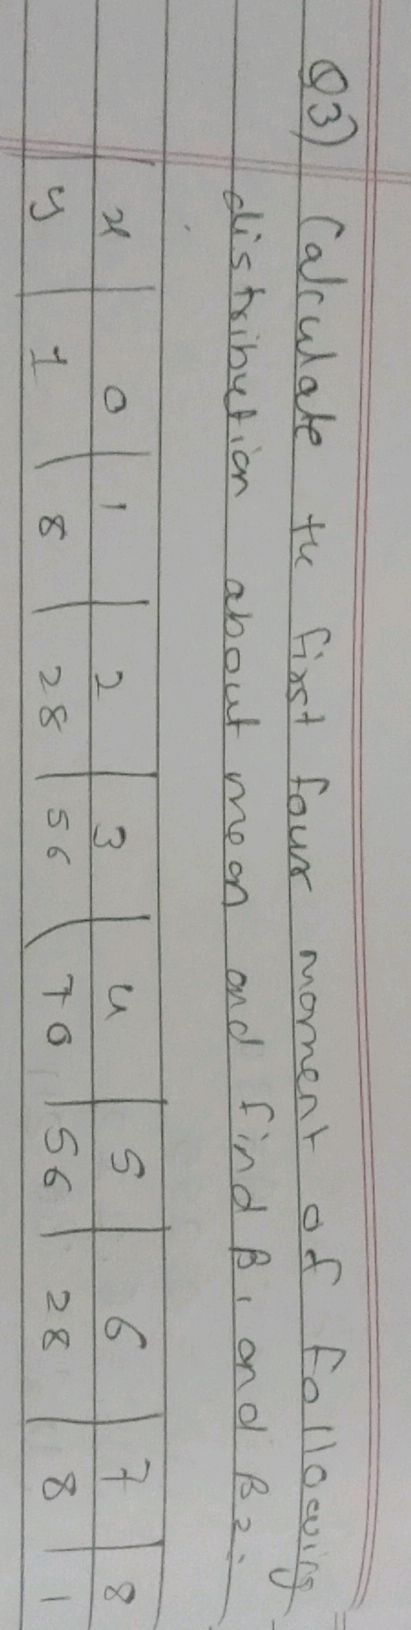 Q3) Calculate the first four moment of following
distribution about mean and find β1 and β2.
x | 0 | 1 | 2 | 3 | 4 | 5 | 6 | 7 | 8
y | 1 | 8 | 28 | 56 | 70 | 56 | 28 | 8 | 1